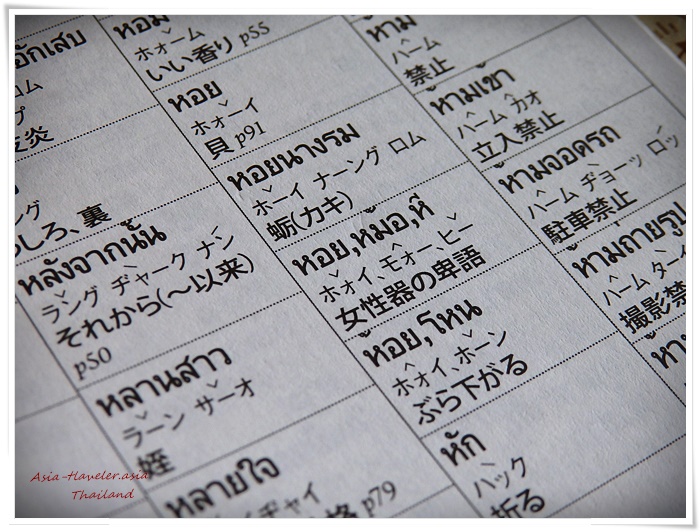 อักเสบ
หลังจากนั้น
ラング ヂャーク ナン
それから(〜以来)
p50
หลานสาว
ラーン サーオ
姪
หลายใจ
p79
หอม
ホォーム
いい香り p55
หอย
ホォーイ
貝 p91
หอยนางรม
ホーイ ナーング ロム
蛎(カキ)
หอย,หมอ,หี
ホォイ、モォー、ヒー
女性器の卑語
ห้อย,โหน
ホォイ、ホーン
ぶら下がる
หัก
ハック
折る
ห้าม
ハーム
禁止
ห้ามเข้า
ハーム カオ
立入禁止
ห้ามจอดรถ
ハーム ヂョーッ ロッ
駐車禁止
ห้ามถ่ายรูป
ハーム ターイ
撮影禁
Asia-Traveler.asia
Thailand